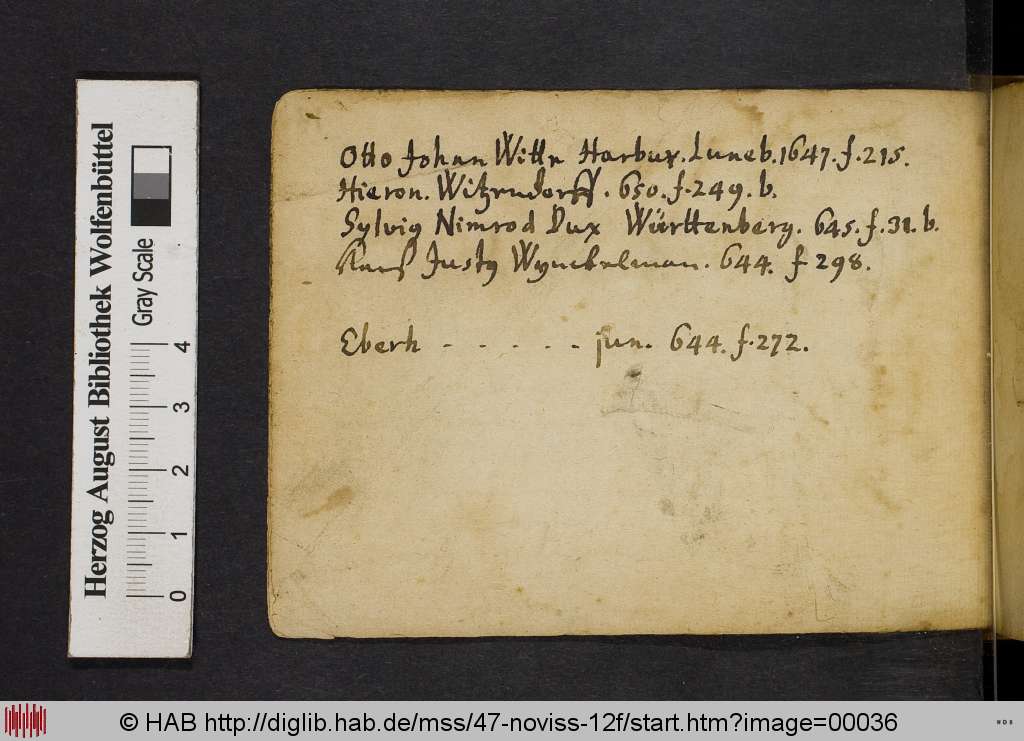 Otto Johann Witte Harbur. Luneb. 1647. f. 215.
Hieron. Witzendorff. 650. f. 249. b.
Sylvig Nimrod Dux Württenberg. 645. f. 31. b.
Justg Wynckelman. 644. f 298.
Eberh - - - - - jun. 644. f. 272.
Herzog August Bibliothek Wolfenbüttel
Gray Scale
0 1 2 3 4
© HAB http://diglib.hab.de/mss/47-noviss-12f/start.htm?image=00036